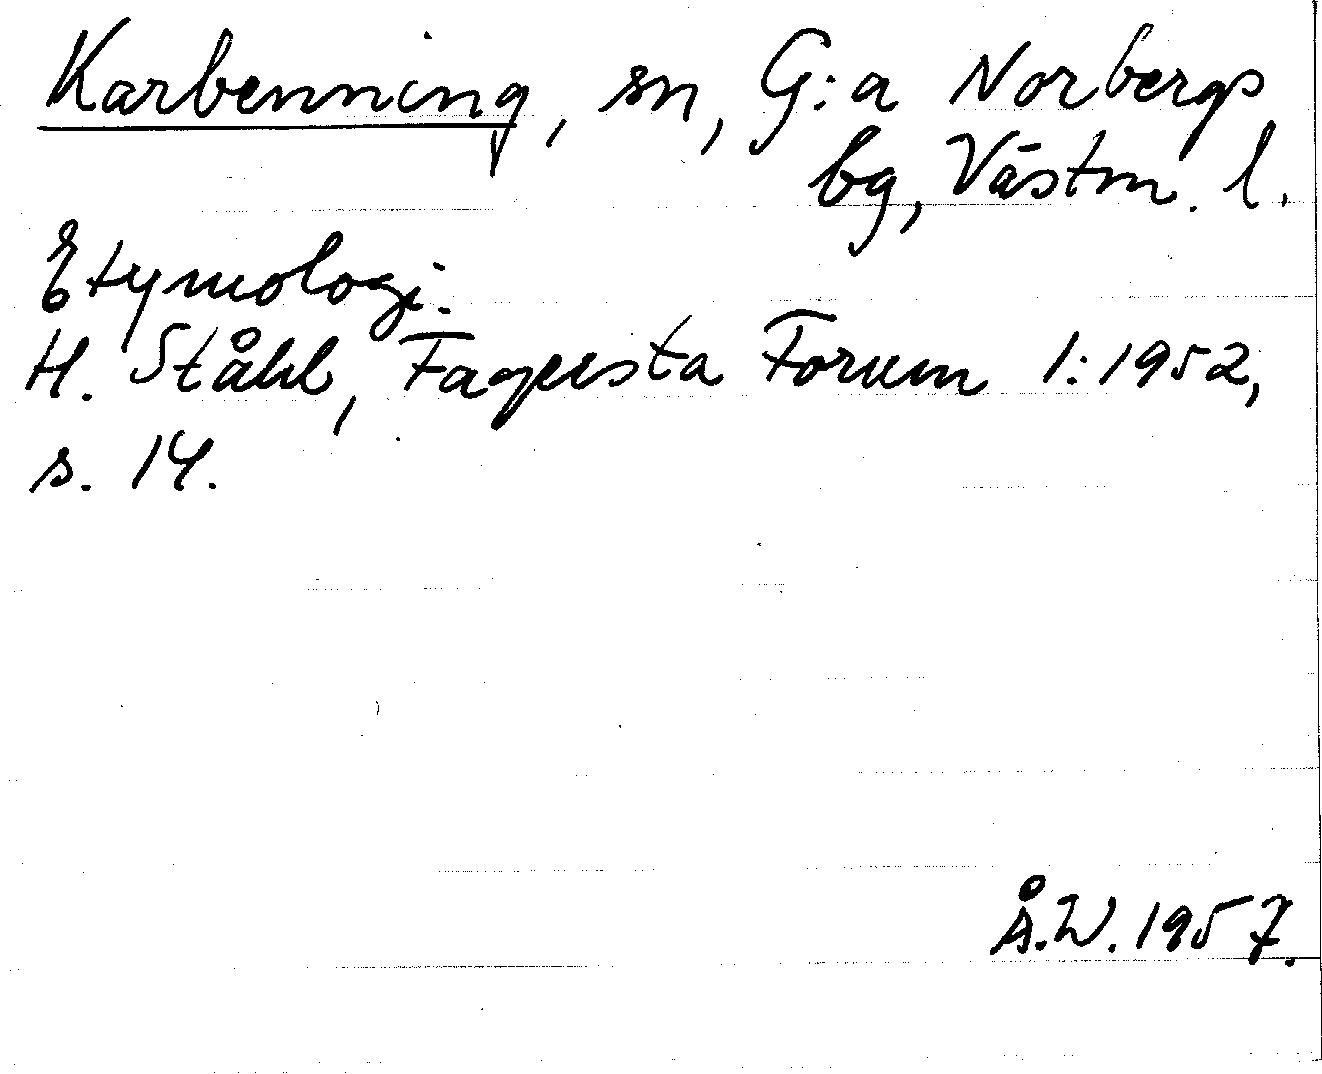 Karbenning, sn, G:a Norbergs
bg, Västm. l.
Etymologi.
H. Ståhl, Fagersta Forum 1:1952,
s. 14.
Å.W. 1957.